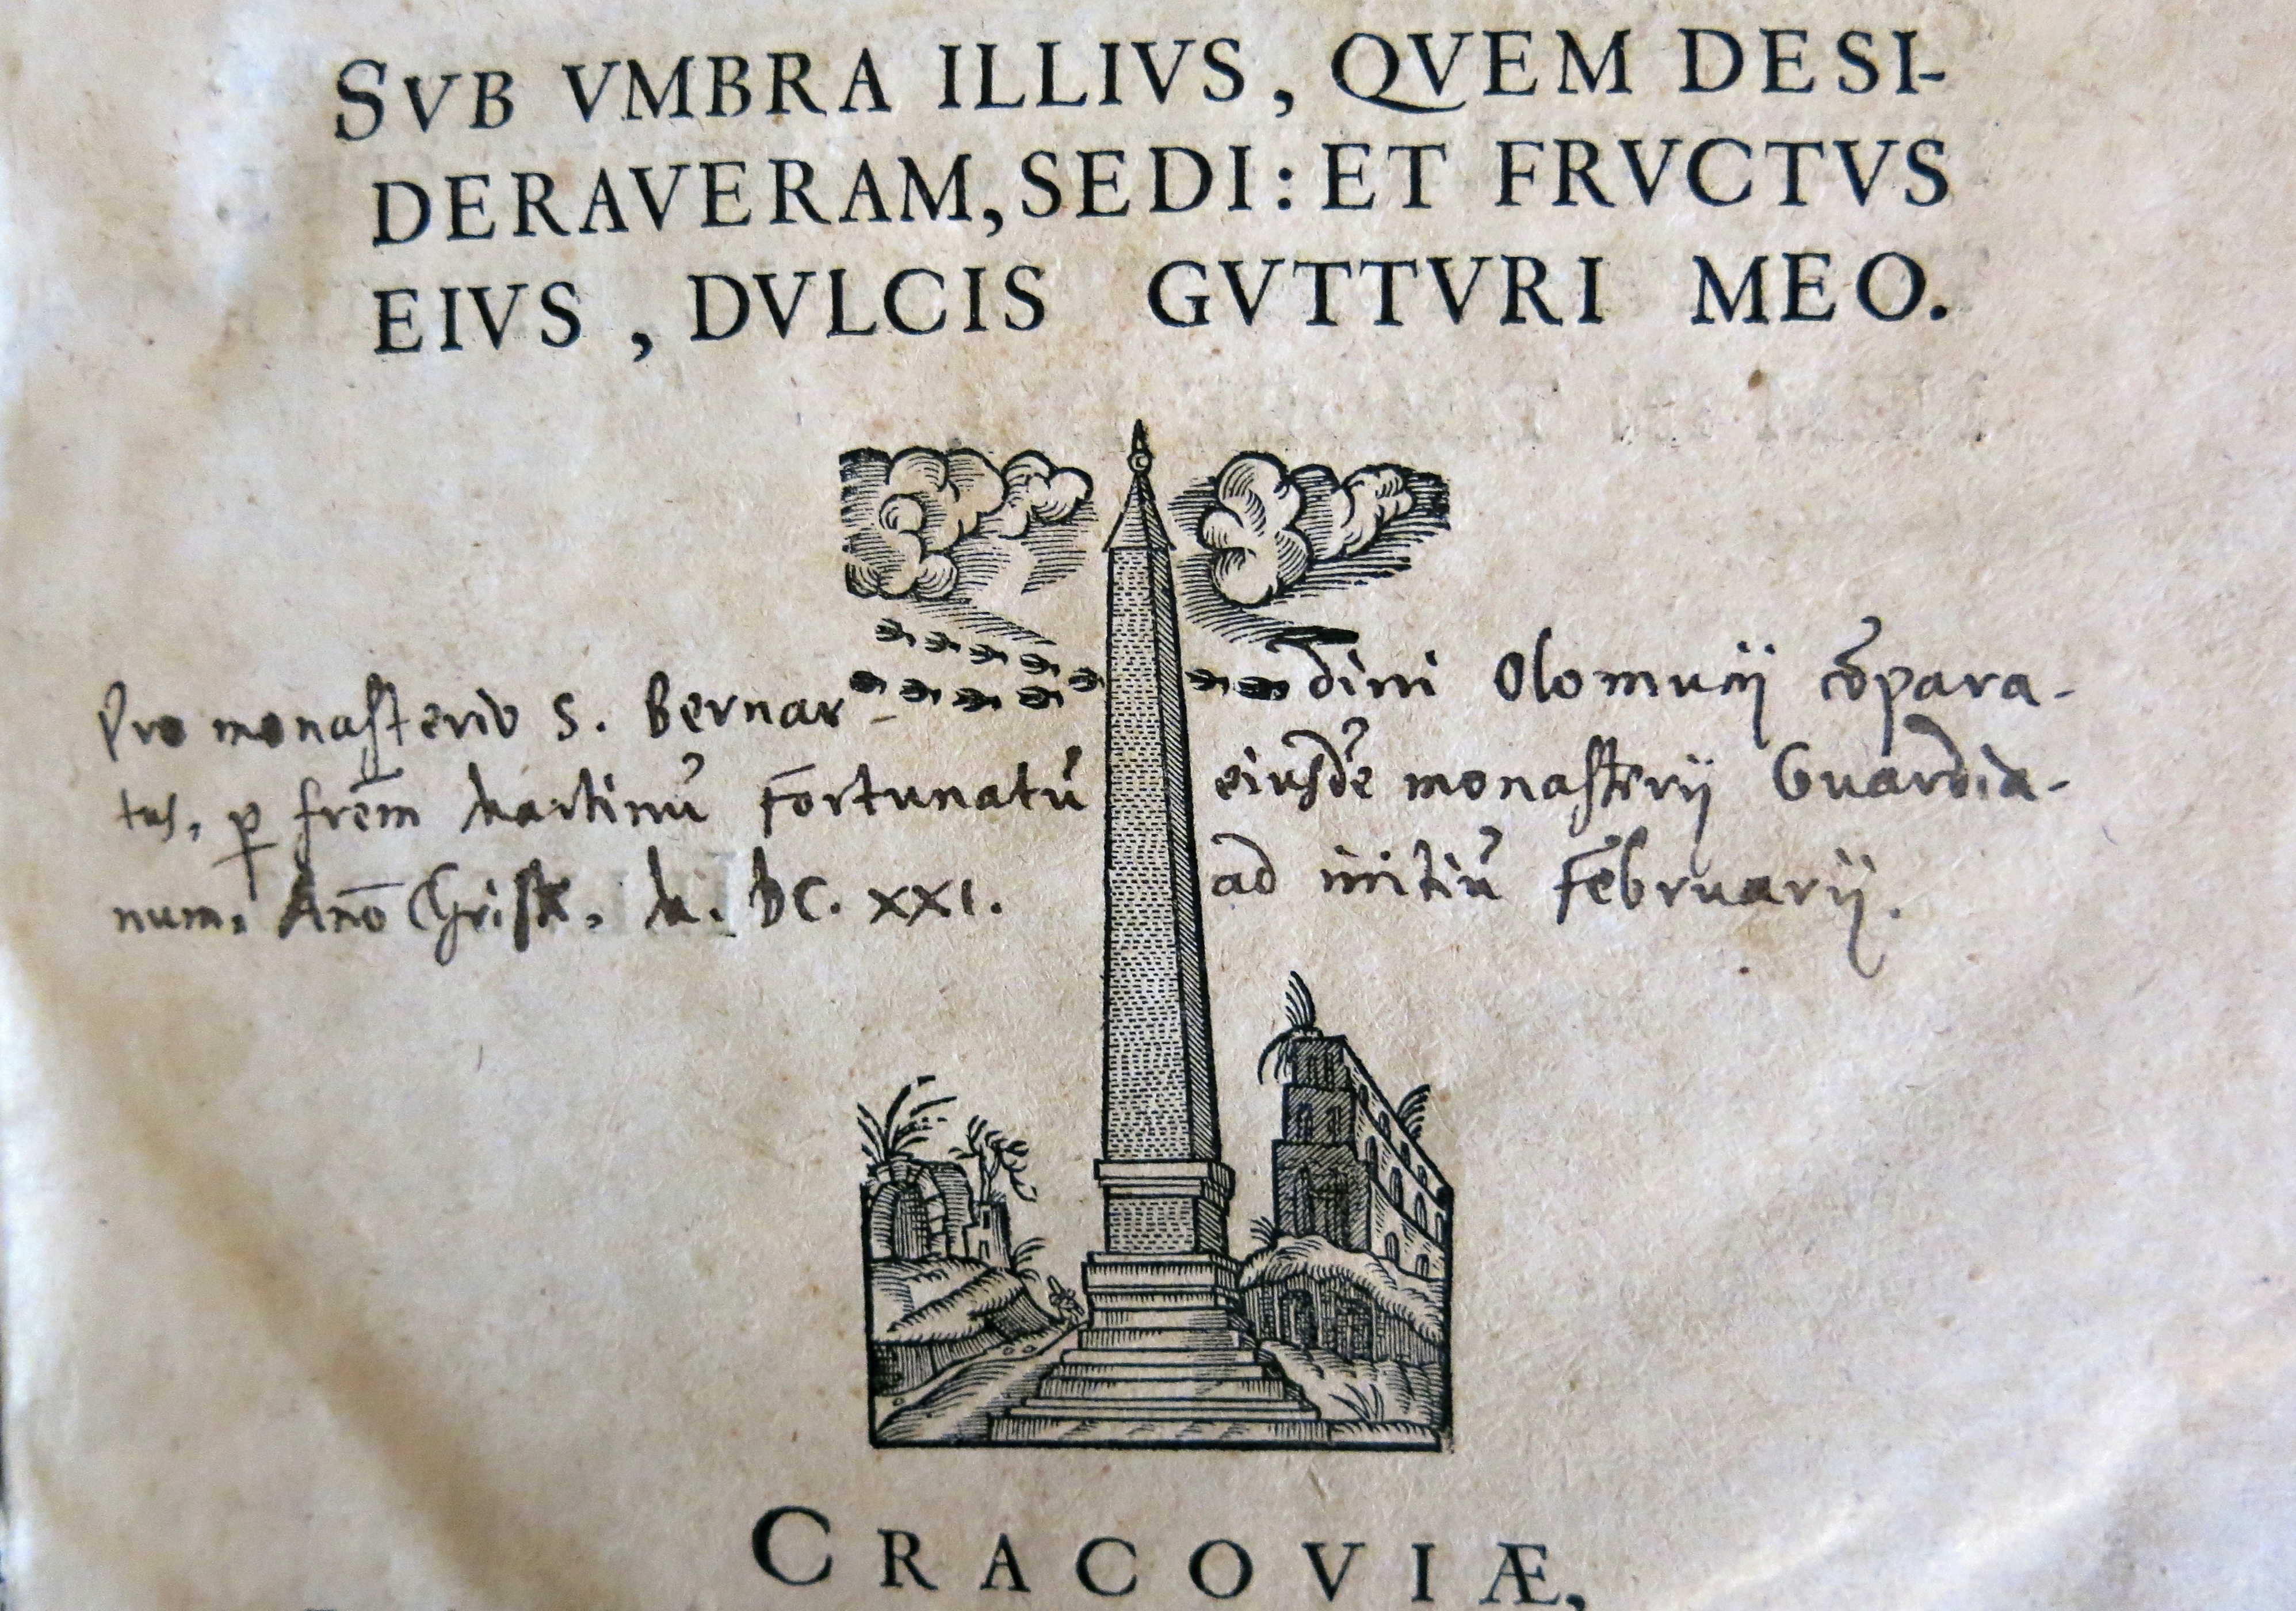 SVB VMBRA ILLIVS, QVEM DESI-
DERAVERAM, SEDI: ET FRVCTVS
EIVS, DVLCIS GVTTVRI MEO.
Pro monasterio S. Bernar- dini Olomucij cōpara-
tus, ꝑ frēm Martinū Fortunatū eiusdē monasterij Guardia-
num. Anō Christi. M. DC. XXI. ad initiū Februarij.
CRACOVIÆ,